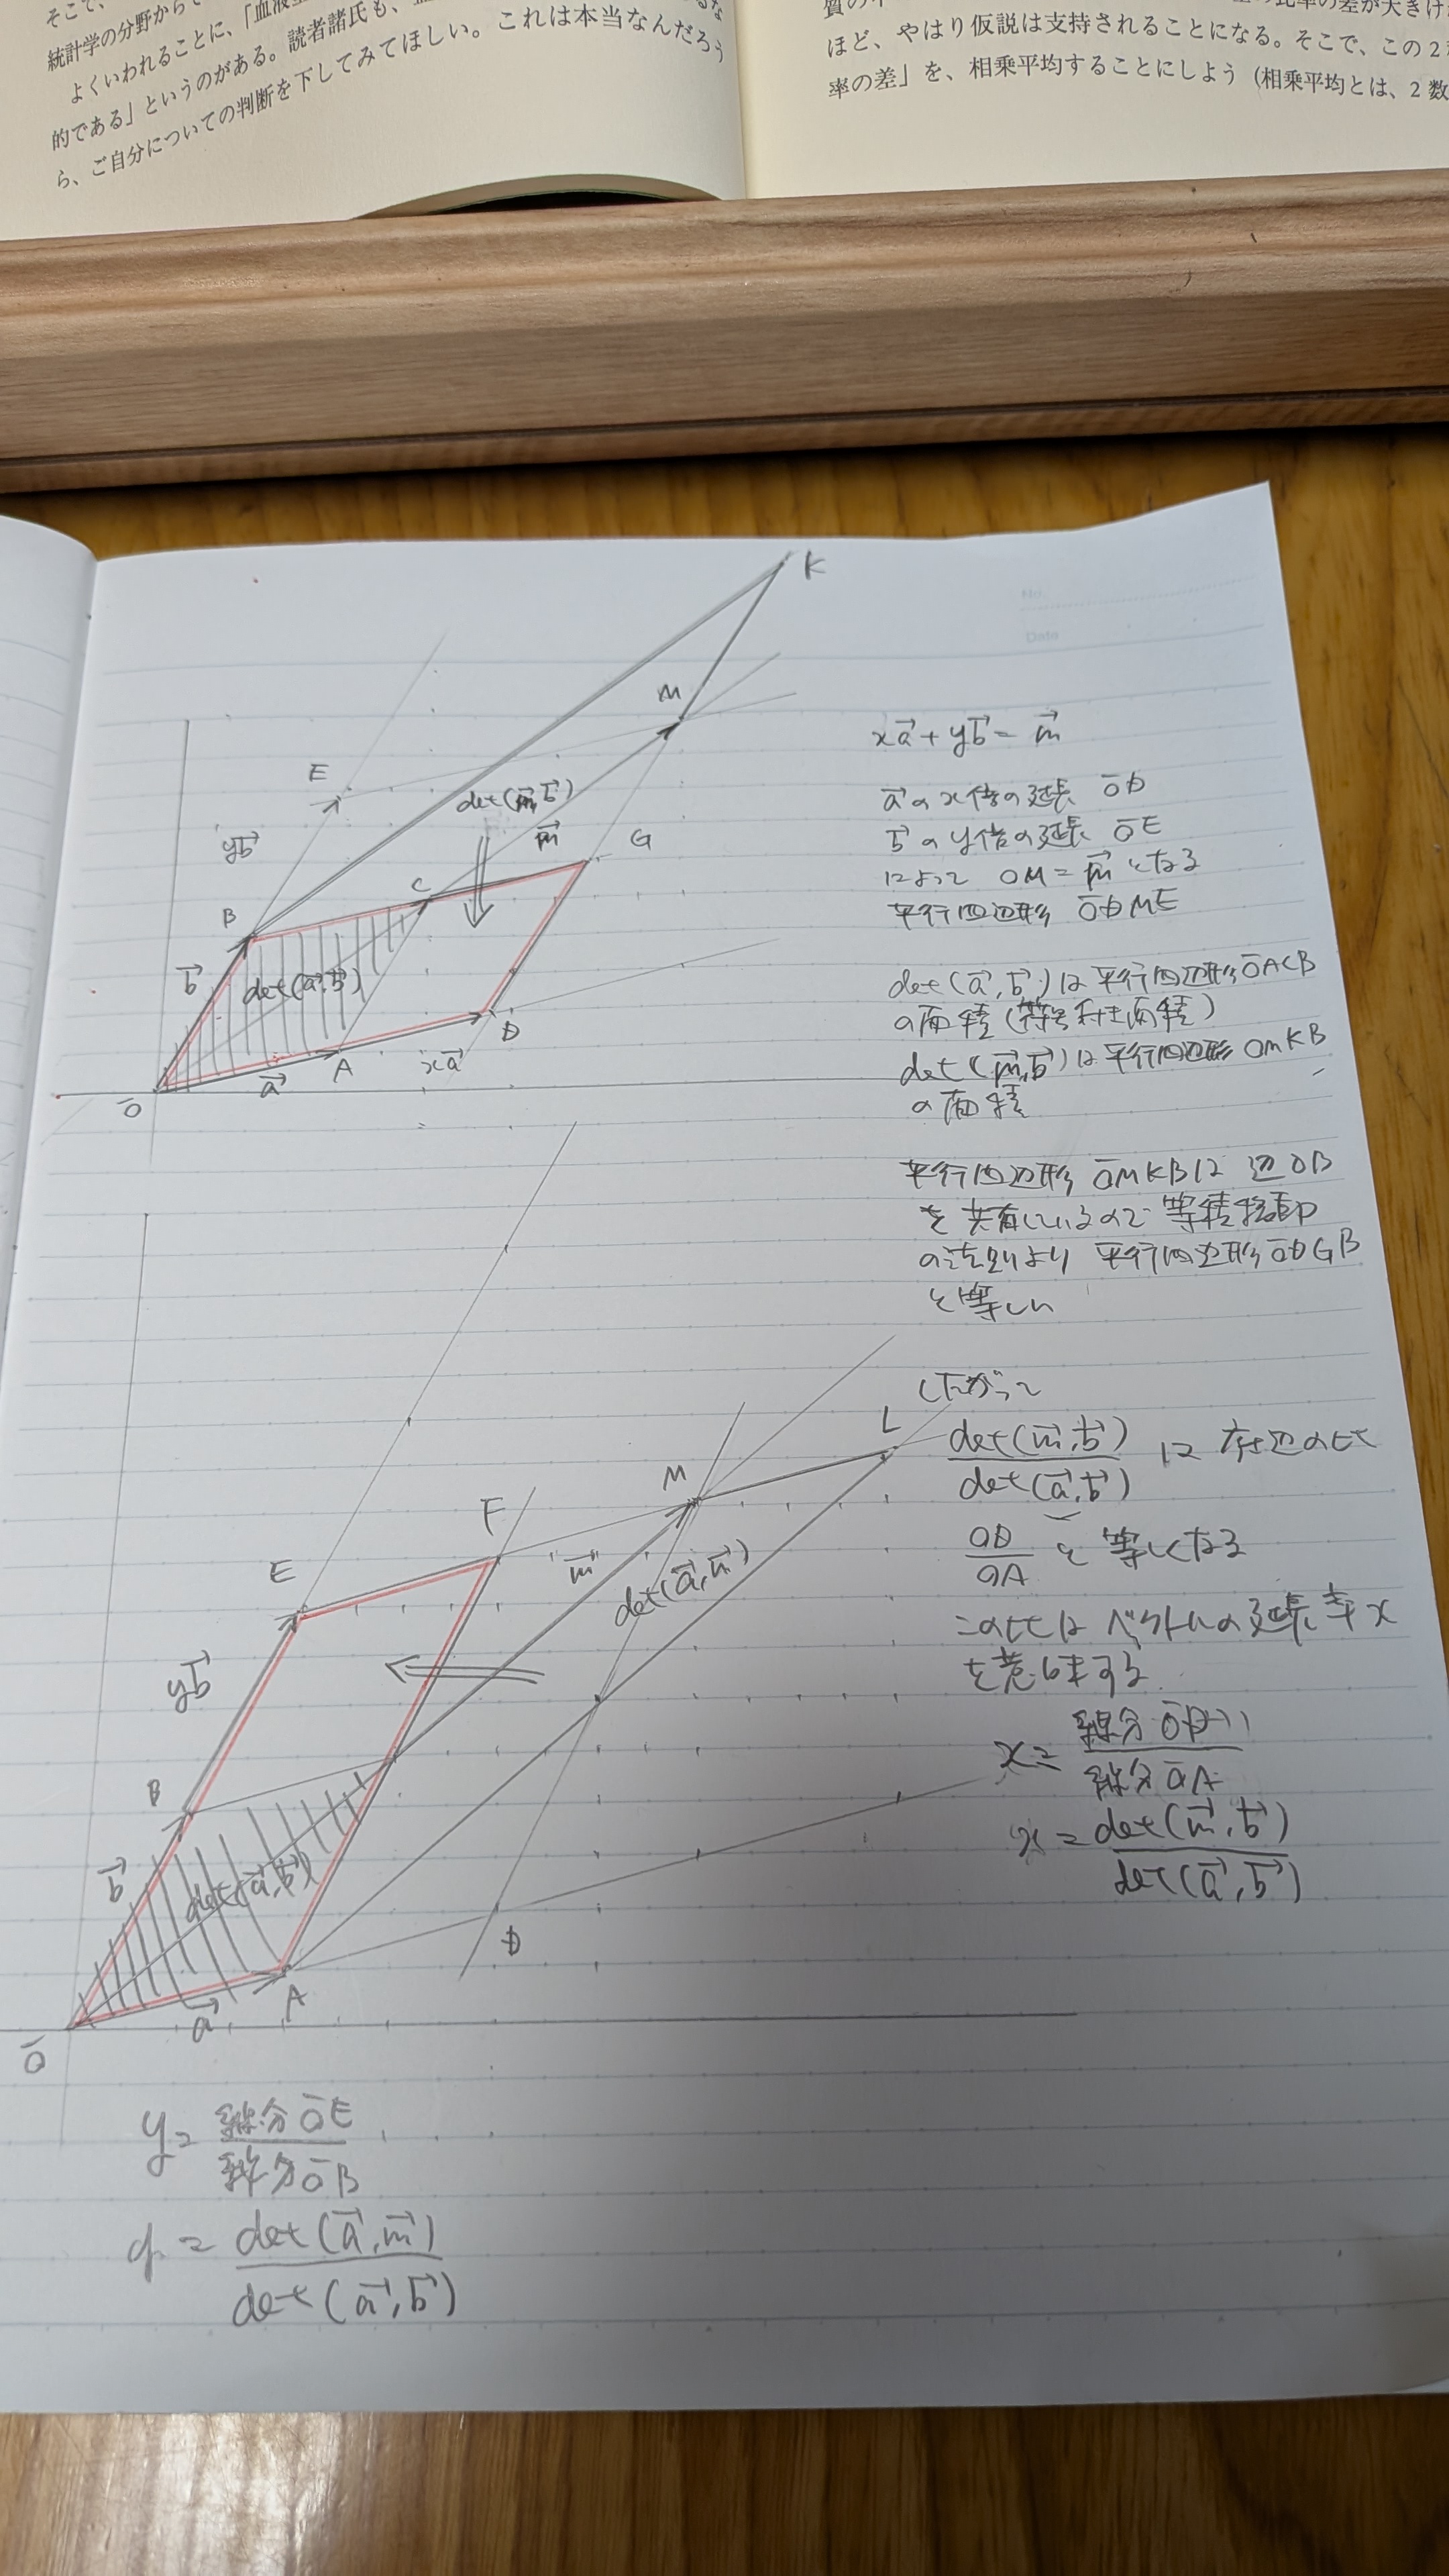 そこで、
統計学の分野から
よくいわれることに、「血液
的である」というのがある。読者諸氏も、
ら、ご自分についての判断を下してみてほしい。これは本当なんだろう
の比率の差が大きけ
ほど、やはり仮説は支持されることになる。そこで、この2
率の差」を、相乗平均することにしよう（相乗平均とは、2数
No.
Date
K
M
E
det(m⃗,b⃗)
yb⃗
m⃗
G
C
B
b⃗
det(a⃗,b⃗)
D
A
xa⃗
a⃗
O
xa⃗+yb⃗=m⃗
a⃗のx倍の延長 OD
b⃗のy倍の延長 OE
によって OM=m⃗となる
平行四辺形 ODME
det(a⃗,b⃗)は平行四辺形OACB
の面積(符号付き面積)
det(m⃗,b⃗)は平行四辺形OMKB
の面積
平行四辺形 OMKBは 辺OB
を共有しているので等積移動
の法則より 平行四辺形ODGB
と等しい
したがって
det(m⃗,b⃗)
det(a⃗,b⃗)
は
の比
OD
OA
と等しくなる
この比はベクトルの延長率x
を意味する
x=
線分OD
線分OA
x=det(m⃗,b⃗)
det(a⃗,b⃗)
L
M
F
E
m⃗
det(a⃗,m⃗)
yb⃗
B
b⃗
det(a⃗,b⃗)
D
A
a⃗
O
y=線分OE
線分OB
y=det(a⃗,m⃗)
det(a⃗,b⃗)